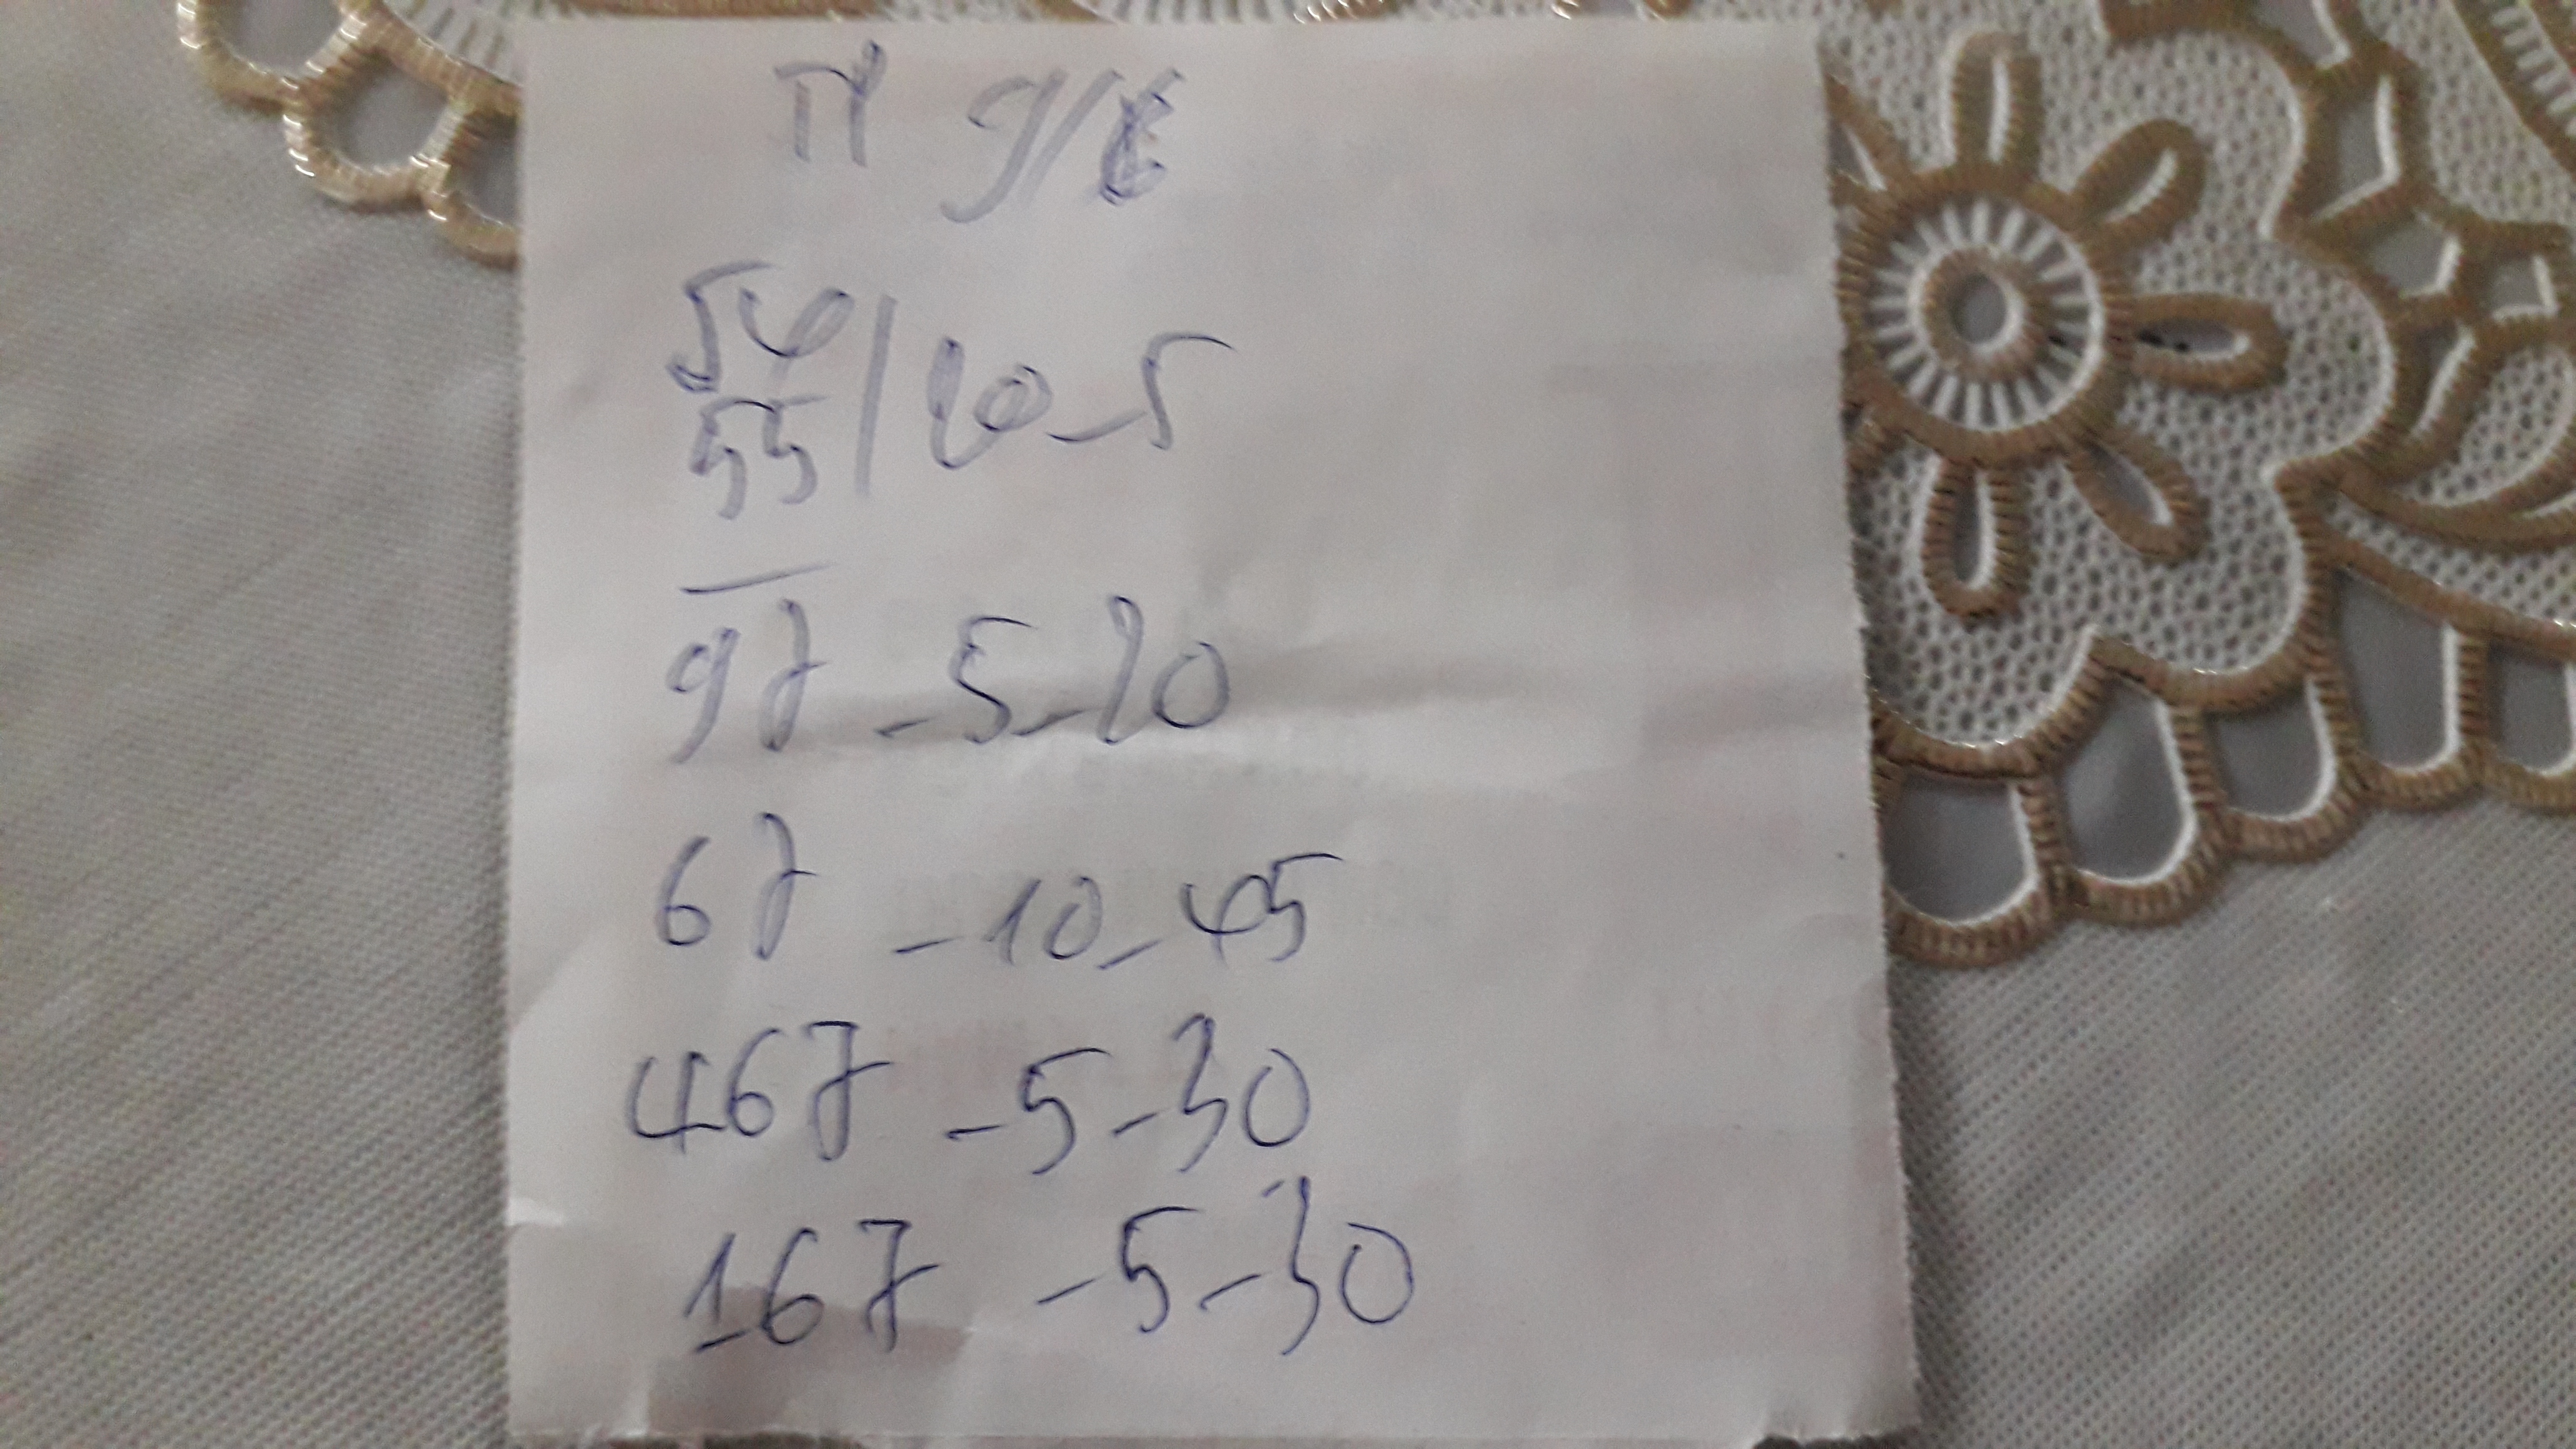 TI 9/6
54
55 | 20-5
97 - 5 - 20
67 - 10 - 45
467 - 5 - 30
167 - 5 - 30